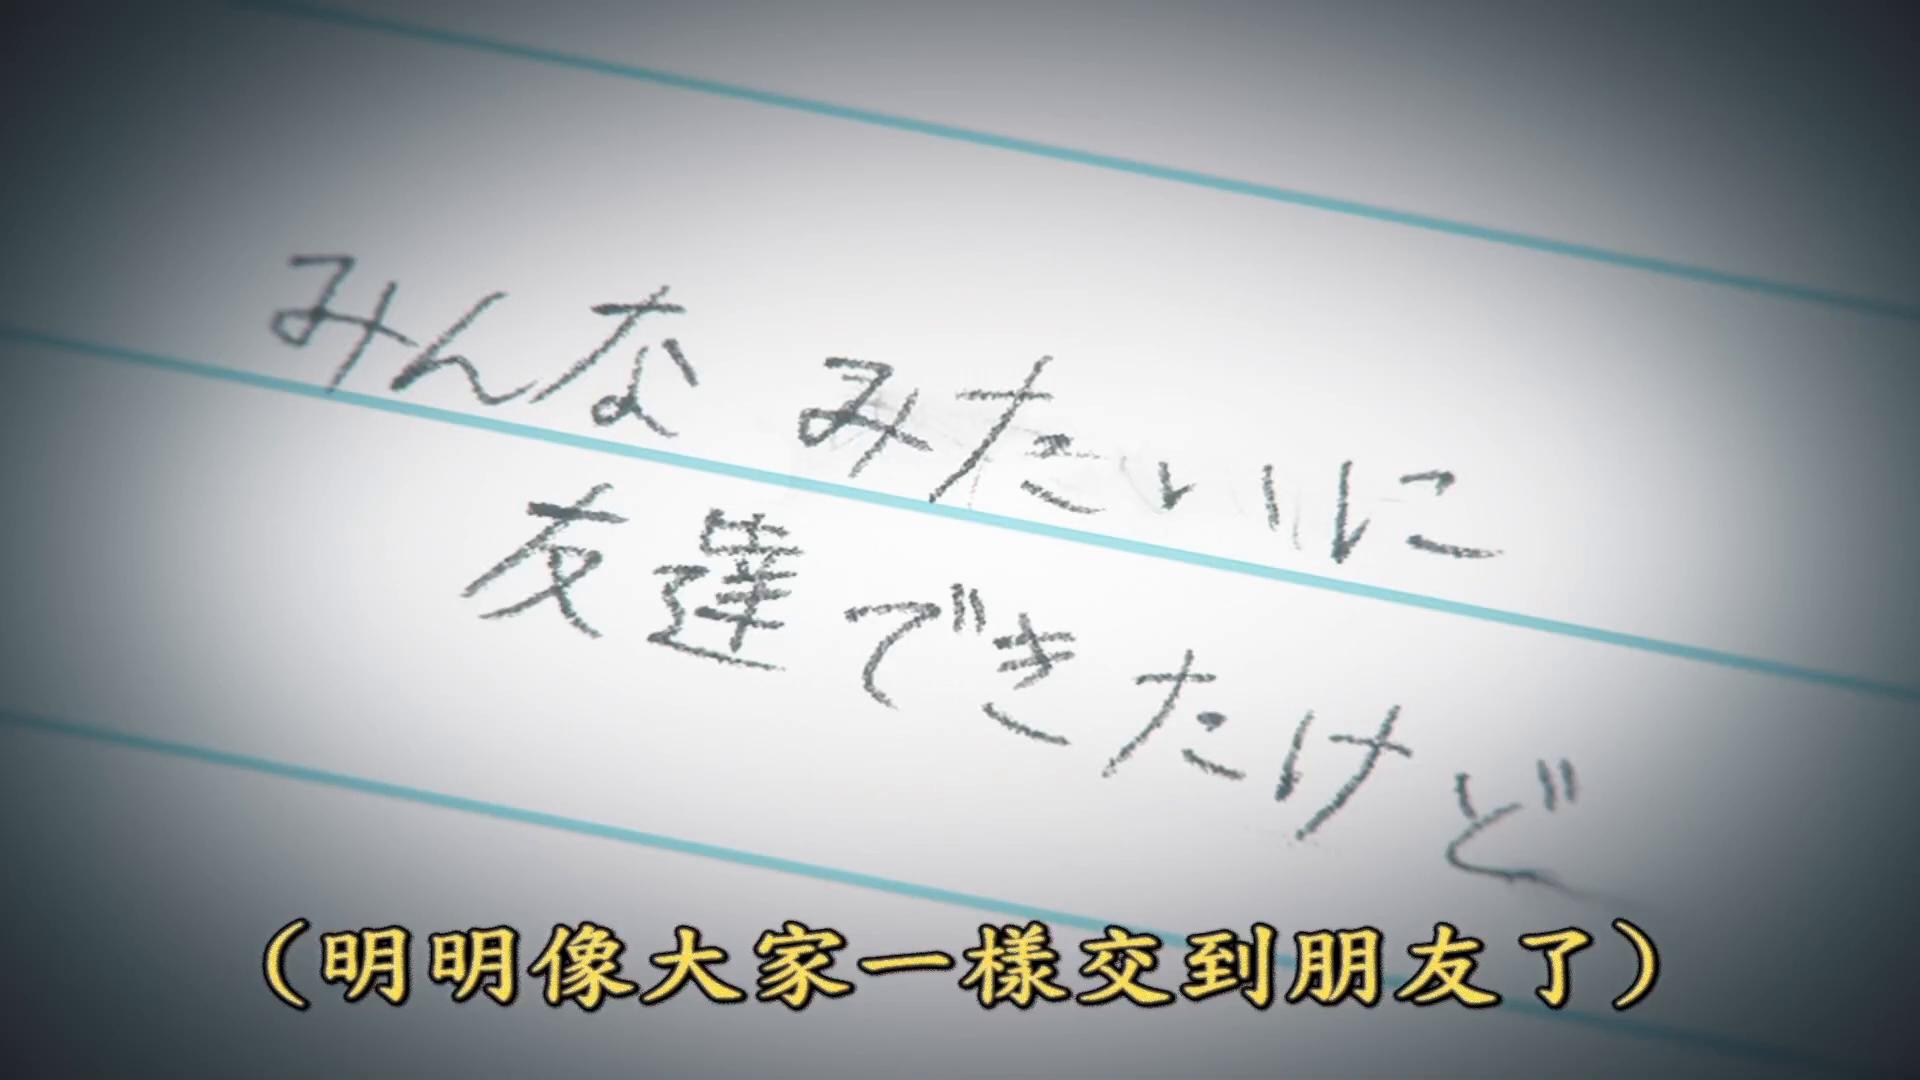 みんな みたいに
友達できたけど
（明明像大家一樣交到朋友了）